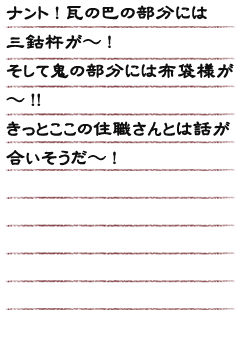 ナント！瓦の巴の部分には
三鈷杵が～！
そして鬼の部分には布袋様が
～!!
きっとここの住職さんとは話が
合いそうだ～！